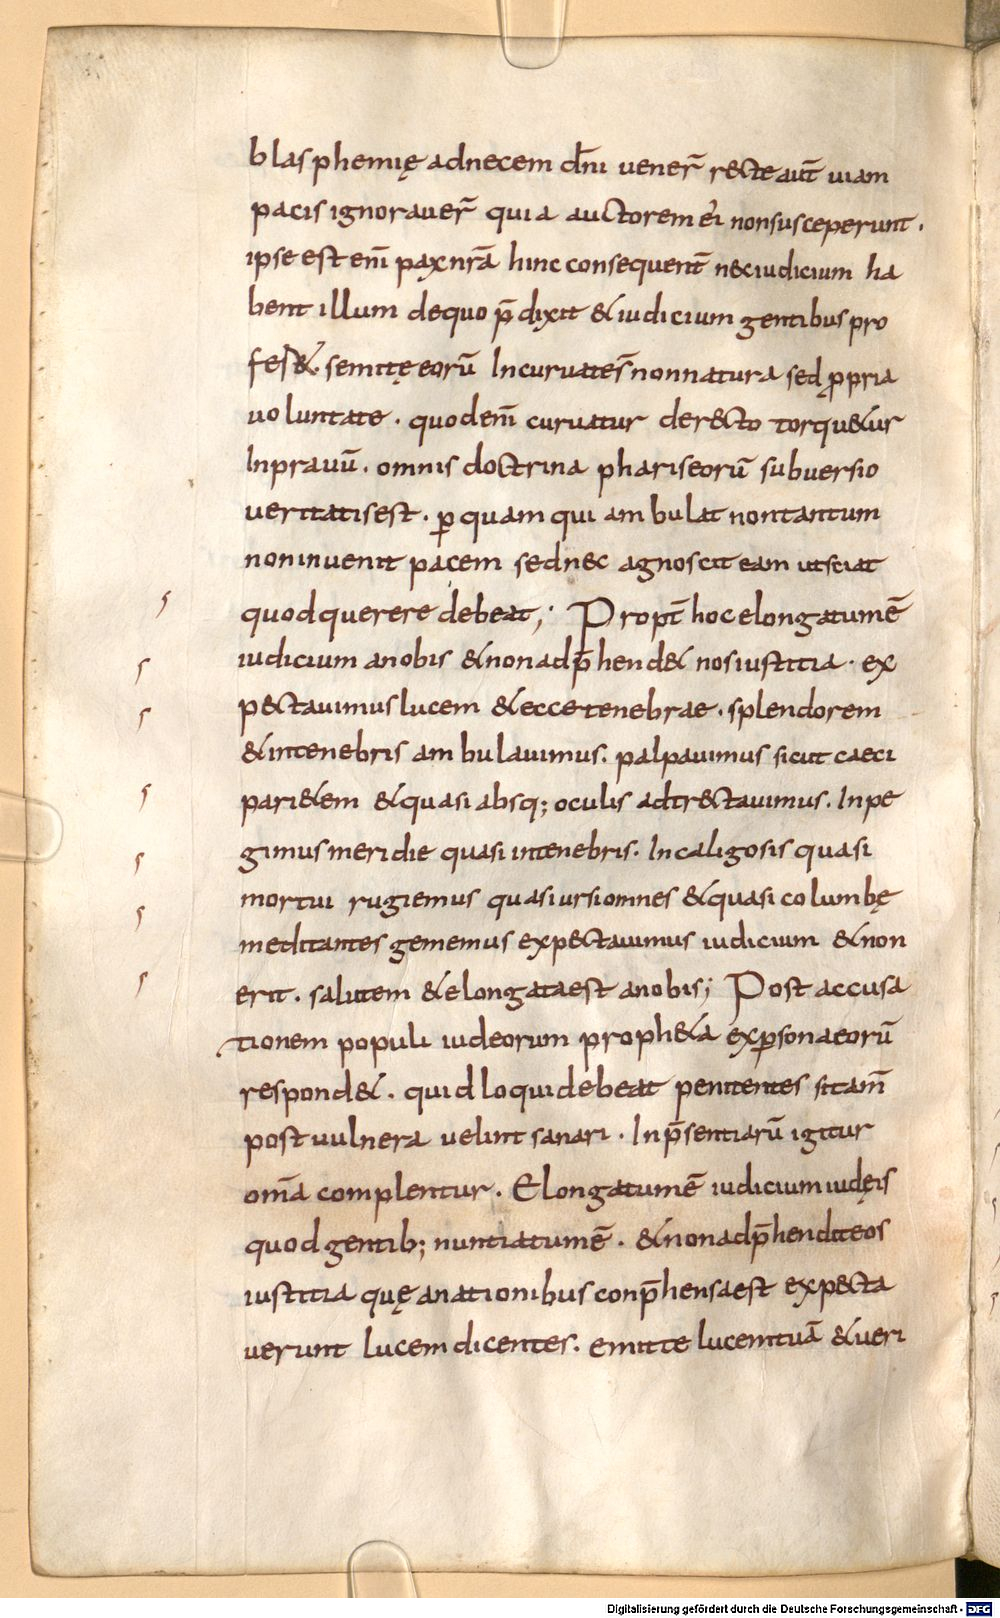 blasphemię ad necem dn̄i uener̄ recte aut̄ uiam
pacis ignorauer̄ quia auctorem ei nonsusceperunt.
ipse est enī pax nr̄a hinc consequent̄ nec iudicium ha
bent illum dequo p̄dixit & iudicium gentibus pro
fer&. semitę eorū Incuruates̄ nonnatura sed ꝓpria
uoluntate. quod enī curuatur derecto torqu&ur
Inprauū. omnis doctrina phariseorū subuersio
ueritatis est. ꝑ quam qui ambulat nontantum
noninuenit pacem sednec agnoscit eam utsciat
quod querere debeat; Propt̄ hoc elongatumē
iudicium anobis &nonadp̄hend& nos iustitia. ex
pectauimus lucem &ecce tenebrae. splendorem
&intenebris ambulauimus. palpauimus sicut caeci
pari&em &quasi absq; oculis adtrectauimus. Inpe
gimus meridie quasi intenebris. Incaligosis quasi
mortui rugiemus quasi ursi omnes &quasi columbę
meditantes gememus expectauimus iudicium &non
erit. salutem &elongata est anobis; Post accusa
tionem populi iudeorum proph&a exꝑsona eorū
respond&. quid loqui debeat penitentes sitam̄
post uulnera uelint sanari. Inp̄sentiarū igitur
om̄a complentur. Elongatumē iudicium iudęis
quod gentib; nuntiatumē. &nonadp̄hendit eos
iustitia quę anationibus conp̄hensa est expecta
uerunt lucem dicentes. emitte lucem tuā &ueri
Digitalisierung gefördert durch die Deutsche Forschungsgemeinschaft - DFG